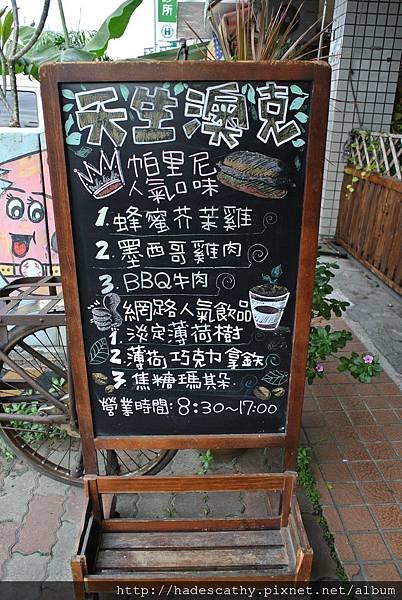 天生澳克
帕里尼
人氣口味
1.蜂蜜芥茉雞
2.墨西哥雞肉
3.BBQ牛肉
網路人氣飲品
1.淡定薄荷樹
2.薄荷巧克力拿鉄
3.焦糖瑪其朵
營業時間:8:30~17:00
http://hadescathy.pixnet.net/album